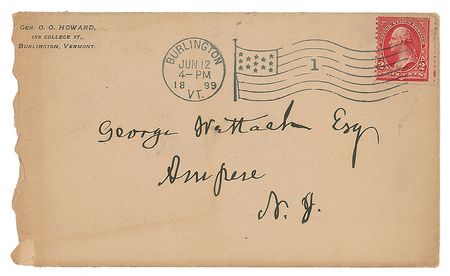 GEN. O. O. HOWARD,
156 COLLEGE ST.,
BURLINGTON, VERMONT.
BURLINGTON
JUN 12
4-PM
18 99
VT.
1
2 2
CENTS
George Esq
Ampere
N. J.